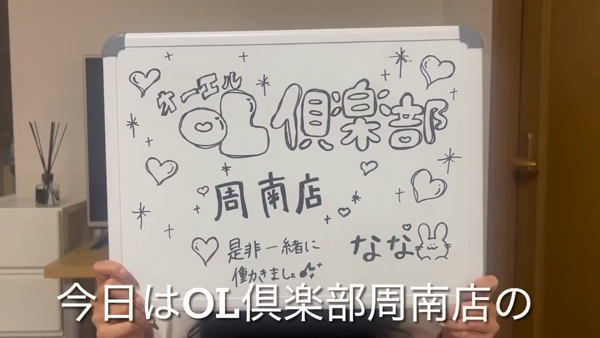 オーエル
OL倶楽部
周南店
是非一緒に
働きましょ
なな
今日はOL倶楽部周南店の